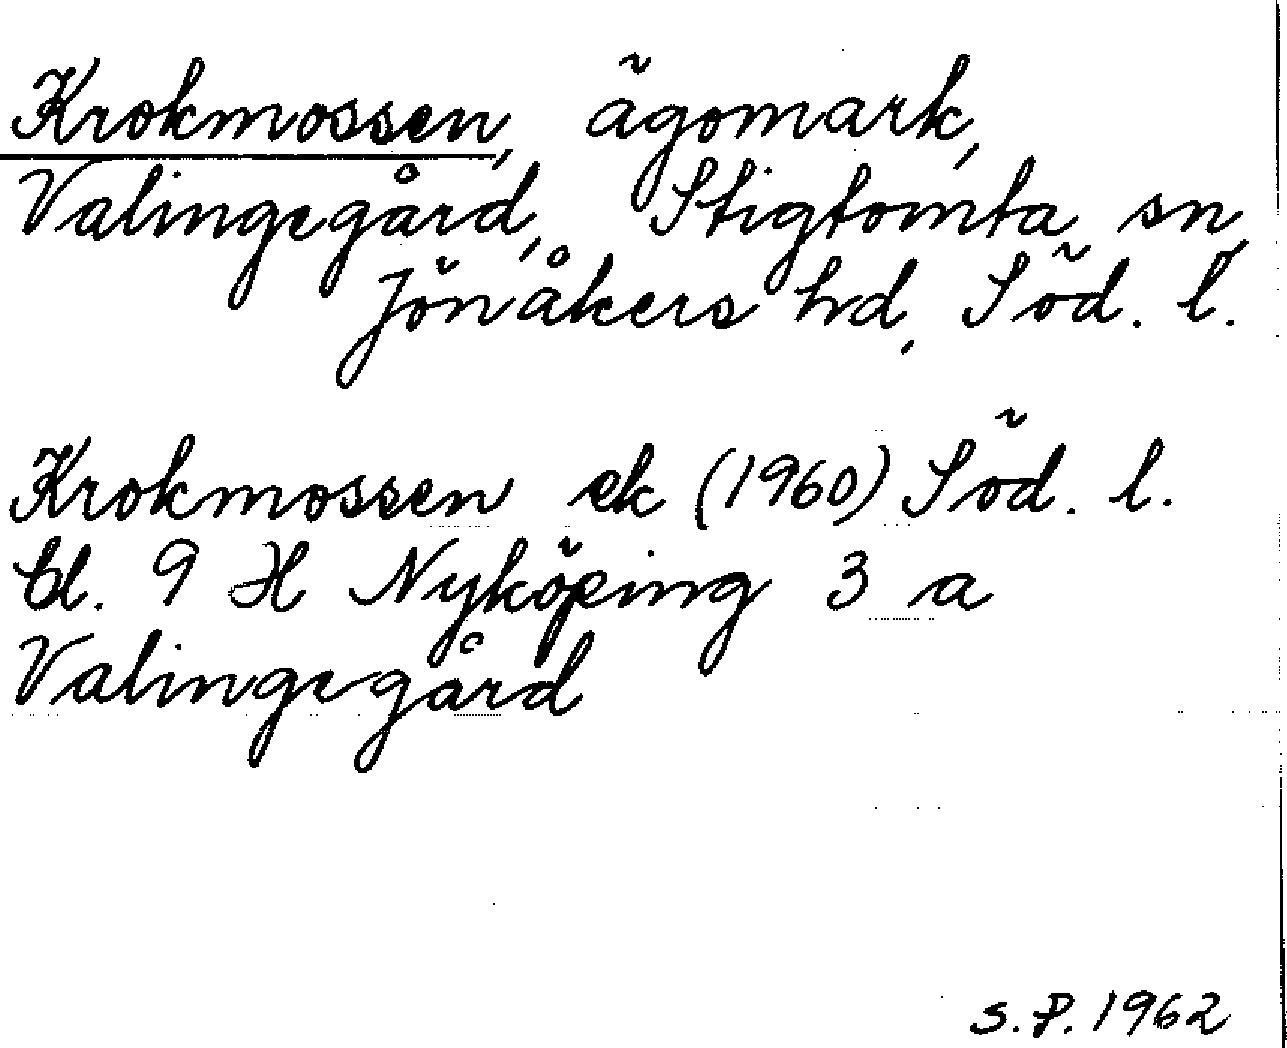 Krokmossen, ägomark,
Valingegård, Stigtomta sn,
Jönåkers hd, Söd. l.
Krokmossen ek (1960) Söd. l.
bl. 9 H Nyköping 3 a
Valingegård
S.P. 1962